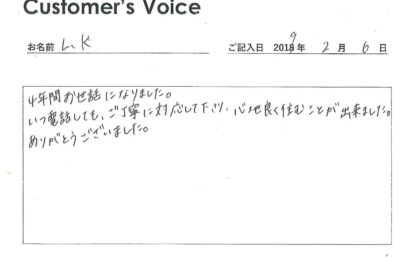 Customer's Voice
お名前 L.K ご記入日 2019年 2月 6日
4年間お世話になりました。
いつ電話しても、ご丁寧に対応して下さり、心地良く住むことが出来ました。
ありがとうございました。